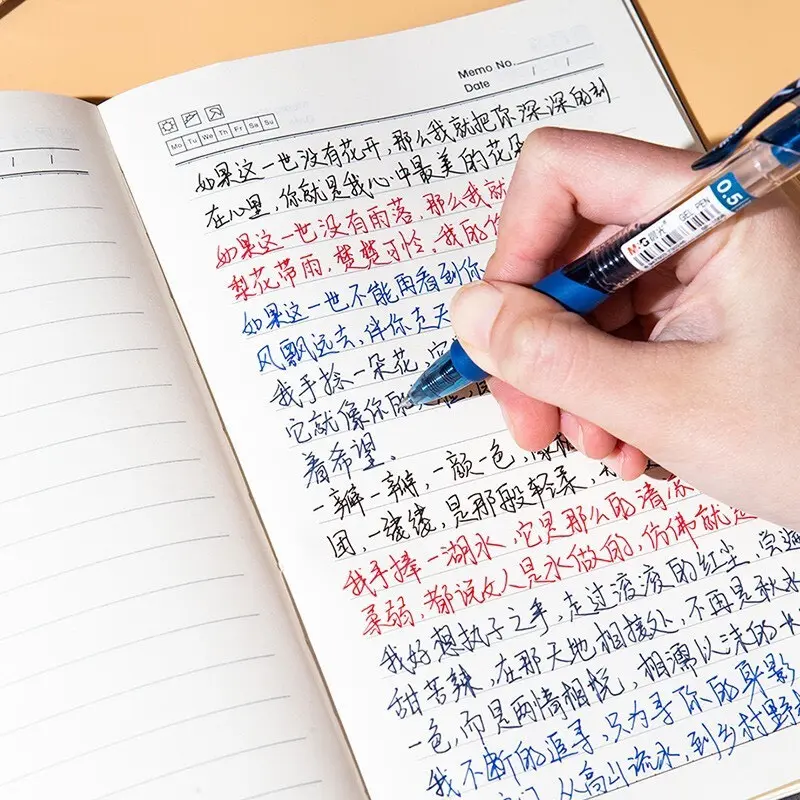 Memo No.
Date / /
Mo Tu We Th Fr Sa Su
如果这一世没有花开，那么我就把你深深的刻
在心里，你就是我心中最美的花
如果这一世没有雨落，那么我就
梨花带雨，楚楚可怜，我的
如果这一世不能再看到你
风飘远去，伴你走天
我手捻一朵花，它
它就像你的
着希望。
一瓣一瓣，一颜一色，
团，一缕缕，是那般轻柔，
我手捧一湖水，它是那么的清凉
柔弱，都说女人是水做的，仿佛就是
我好想执子之手，走过滚滚的红尘，尝遍
甜苦辣，在那天地相接处，不再是秋水
一色，而是两情相悦，相濡以沫的
我不断的追寻，只为寻你的身影
从高山流水，到乡村野
0.5
M&G 晨光
GEL PEN